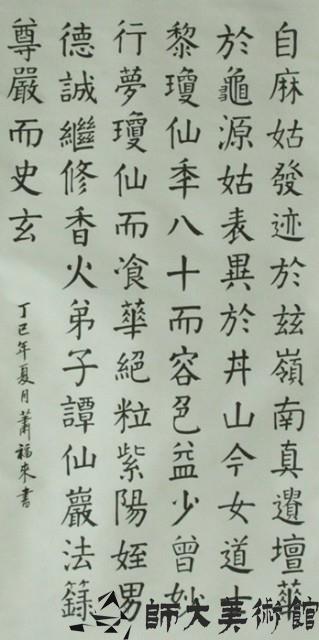 自麻姑發迹於玆嶺南真遺壇華
於龜源姑表異於丼山今女道士
黎瓊仙秊八十而容色益少曾妙
行夢瓊仙而飡華絕粒紫陽姪男
德誠繼修香火弟子譚仙巖法籙
尊嚴而史玄
丁巳年夏月蕭福來書
師大美術館